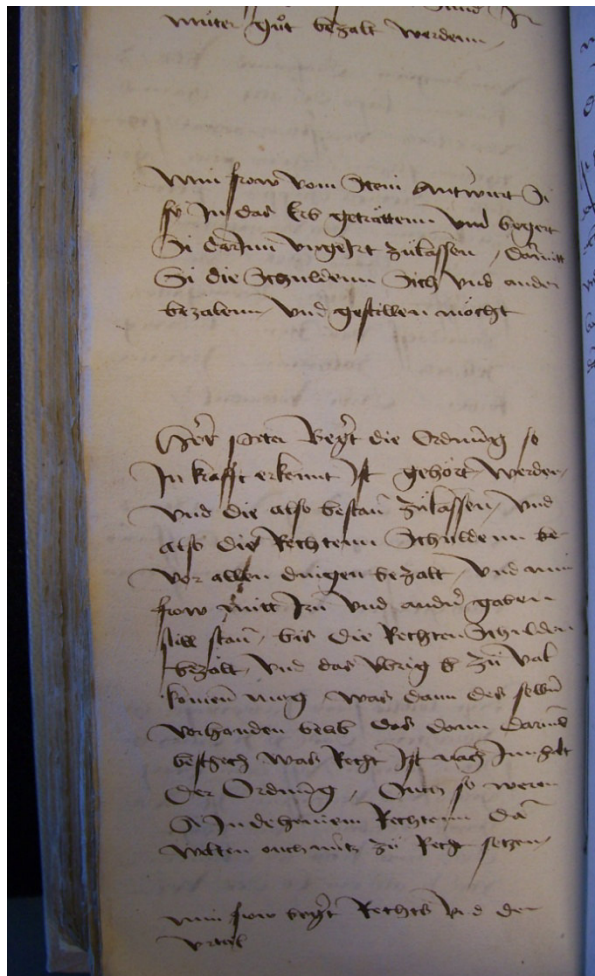 müter güt bezalt werdenn
Min frow vom Stein Antwurt Si
sy In das Erb geträttenn Vnd begert
Si darInn vngeIrt zülassen, damitt
Si die Schuldenn Sich vnd ander
bezalenn vnd gestillen möcht
Her peter begert die Ordnung so
In krafft erkennt Ist gehört werden,
vnd die also bestan zülassen, vnd
also die Rechtenn Schuldenn be
vor allen dingen bezalt, vnd min
frow mitt Irn vnd andern gaben
still stan, bis die Rechten Schulden
bezalt, vnd das vbrig zü val
komen mug, was dann des selbn
vorhanden belib das dann darumb
beschech was Recht Ist nach Innhalt
der Ordnung, Ouch so weren
Si In deheinem Rechtenn Da
wolten ouch nütz zü Recht setzen,
min frow begert Rechts vnd der
vrteil